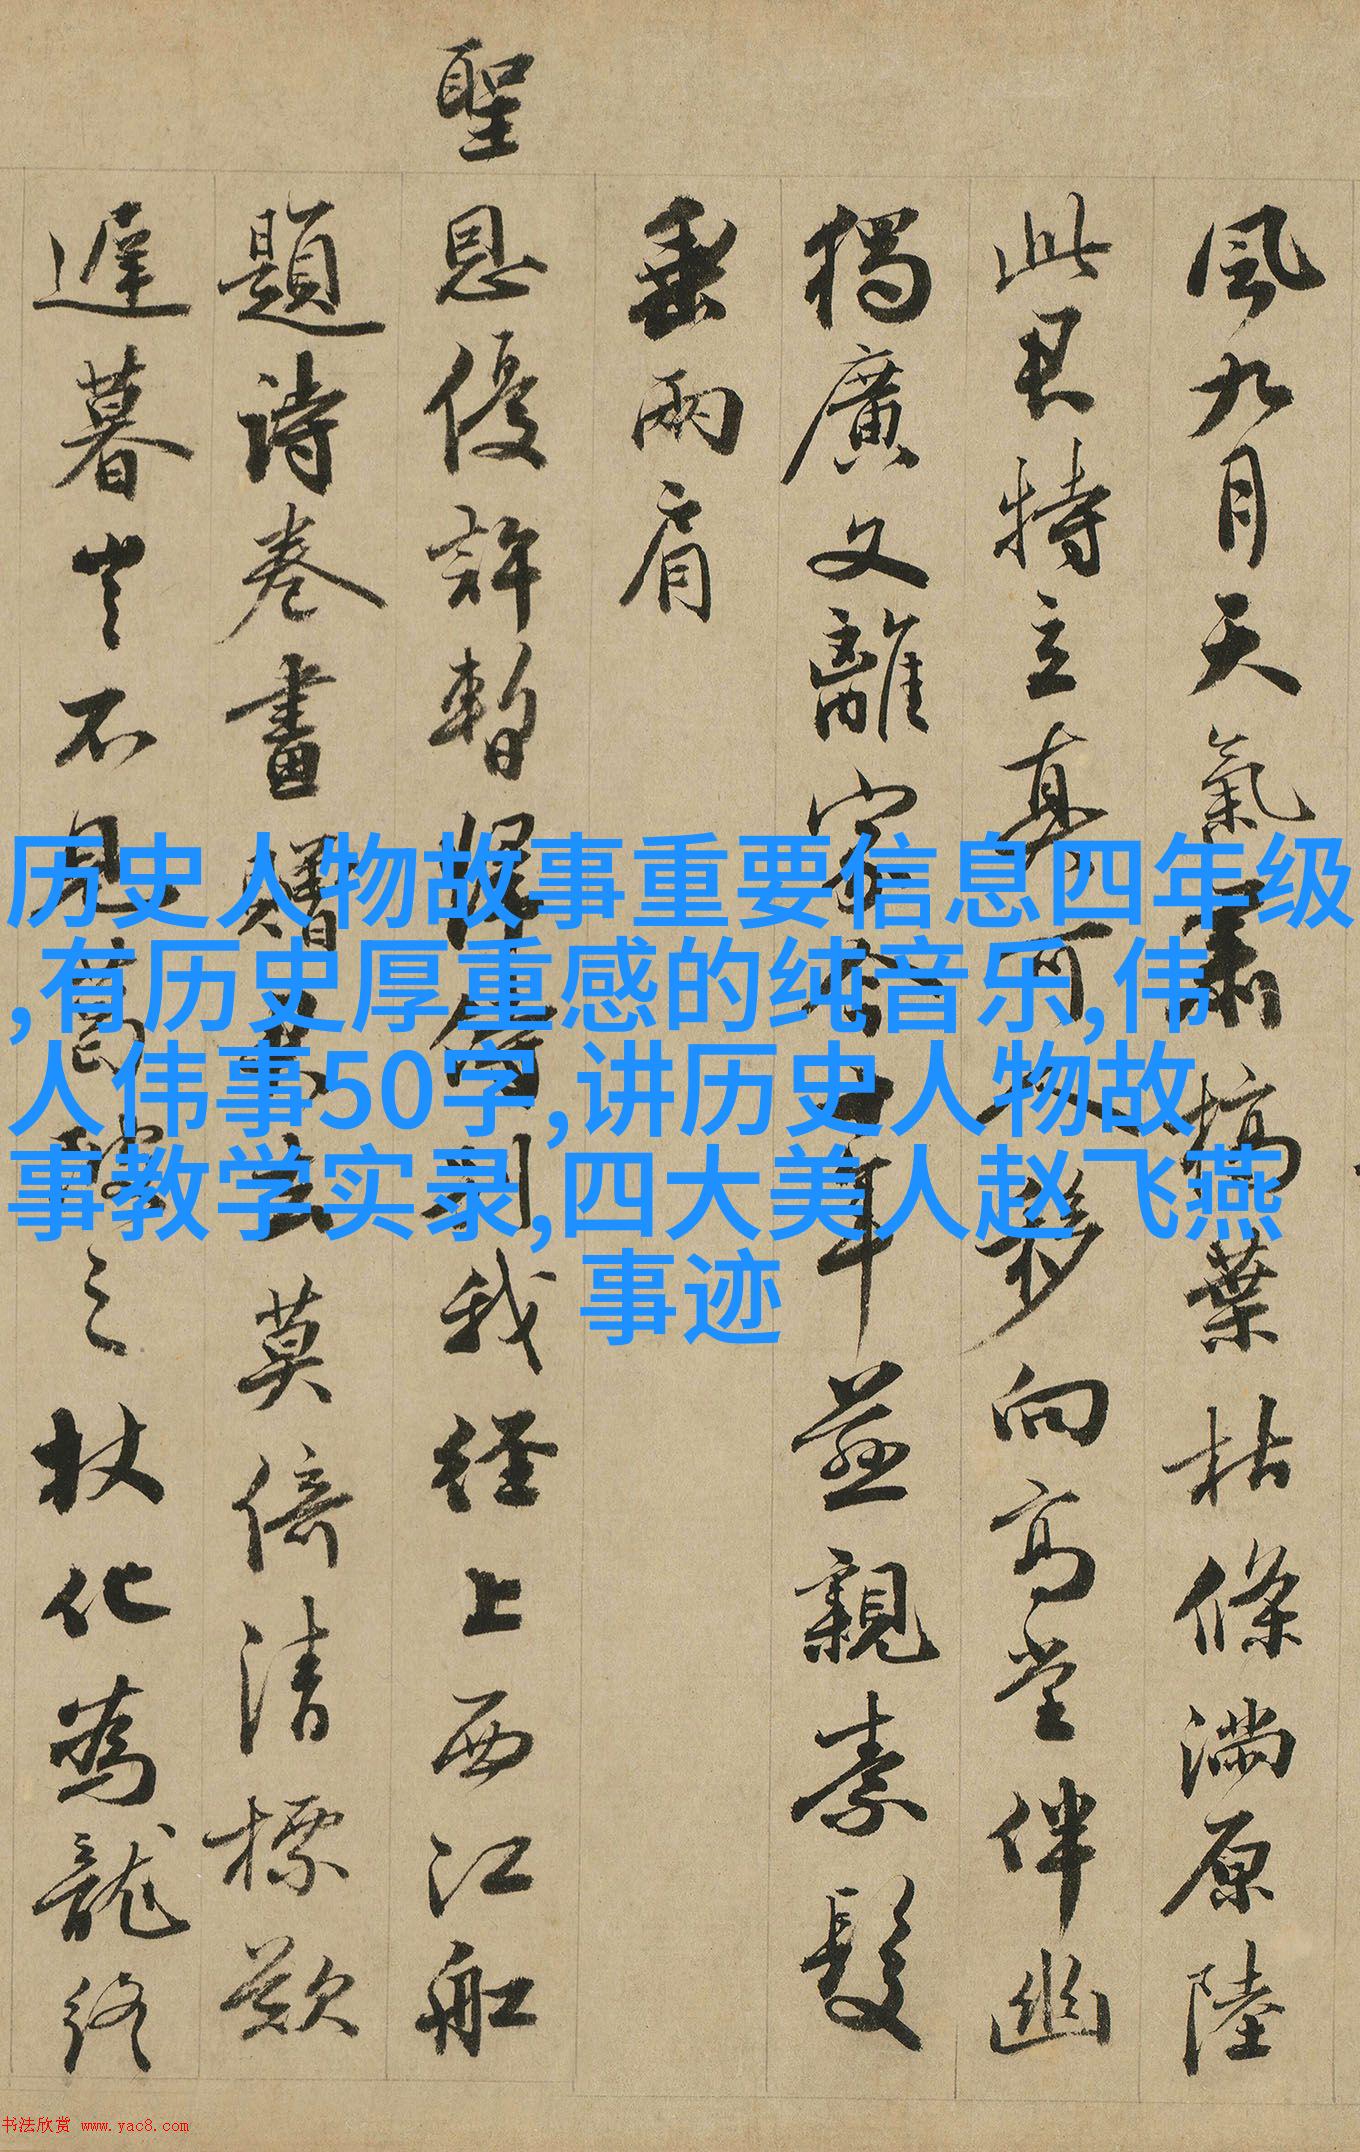 风九月天氣肅槁葉枯條满原陸
此君特立真可人移向高堂伴幽
獨廣文離家今十年並親素髮
垂兩肩
聖
恩優許暫歸
我經上西江船
題詩卷畫贈
莫倍清標歎
遲暮豈不見葛陂之杖化為龍终
历史人物故事重要信息四年级
,有历史厚重感的纯音乐,伟
人伟事50字,讲历史人物故
事教学实录,四大美人赵飞燕
事迹
书法欣赏 www.yac8.com